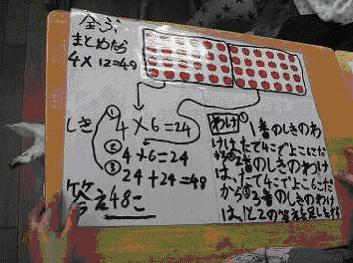 全ぶ
まとめたら
4×12=48
しき
① 4×6=24
② 4×6=24
③ 24+24=48
答え48こ
わけ① 1番のしきのわ
けは、たて4こでよこ6こだ
から② 2番のしきのわけ
は、たて4こでよこ6こだ
から③ 3番のしきのわけ
は、1と2の答えを足した